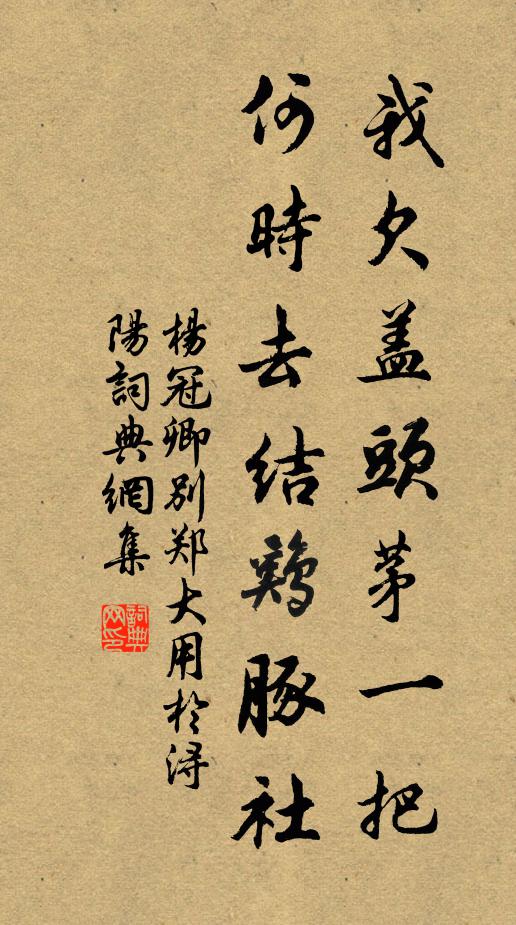 我欠盖頭茅一把
何時去结鷄豚社
楊冠卿别郑大用於浔
陽詞典網集
詞典
网印